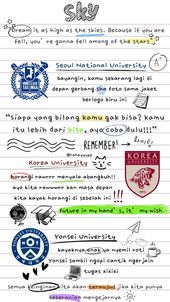 SKY
Dream it as high as the skies. Because if you are
fell, you're gonna fell among of the stars.
A+
Seoul National University
bayangin, kamu sekarang lagi di
depan gerbang sha foto sama jaket
berlogo biru ini
"siapa yang bilang kamu gak bisa? kamu
itu lebih dari bisa, ayo coba dulu!!!"
REMEMBER!
Korea University
horangi rawrrr menyala abangkuh!!
ayo kita rawwwrr kan masa depan
kita kayak horangi di sebelah ini!
KOREA
UNIVERSITY
future in my hand's, it' my wish.
Yonsei University
kayaknya enak ya nyemil roti
Yonsei sambil ngopi cantik ngerjain
tugas xixixi
semua keinginan kita akan terwujud jika kita punya
keberanian mengejarnya